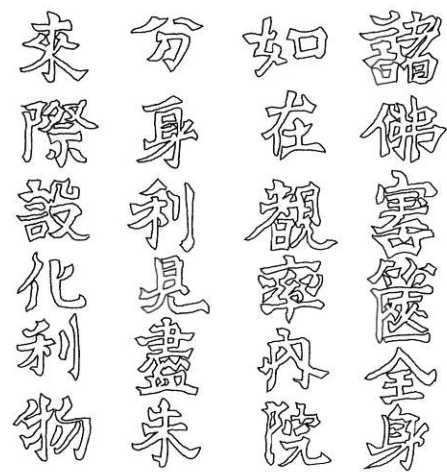 諸佛篋全身
如在觀率内院
分身利見盡未
來際設化利物